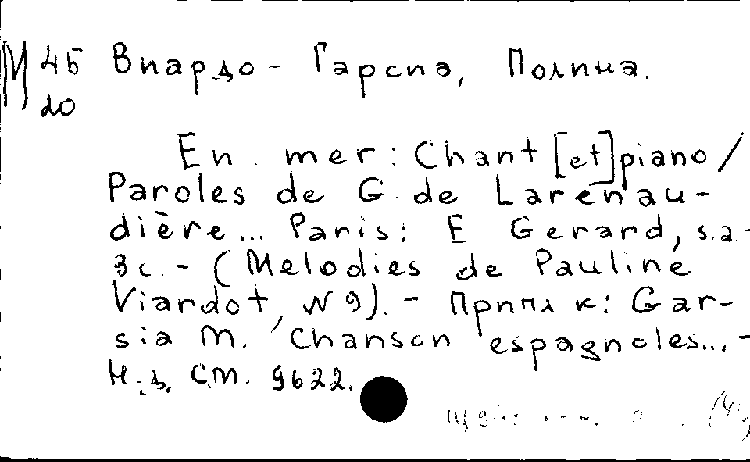 М 45 Виардо - Гарсиа, Полина.
20
En mer: Chant [et] piano /
Paroles de G. de Larenau-
dière... Paris: E Gerard, s.a.-
3 с. - (Melodies de Pauline
Viardot, N 9). - Припл к: Gar-
sia M. Chanson espagnoles... -
Н.д. см. 9622.